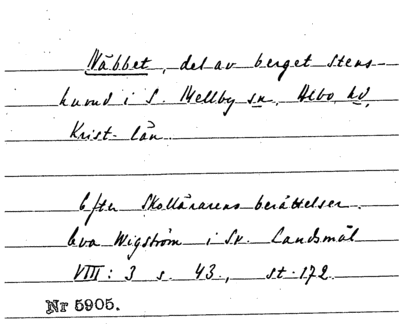 Näbbet, del av berget Stens-
huvud i S. Mellby sn, Albo hd,
Krist. län
Efter Skollärarens berättelser.
Eva Wigström i Sv. Landsmål
VIII: 3 s. 43., st. 172.
Nr 5905.